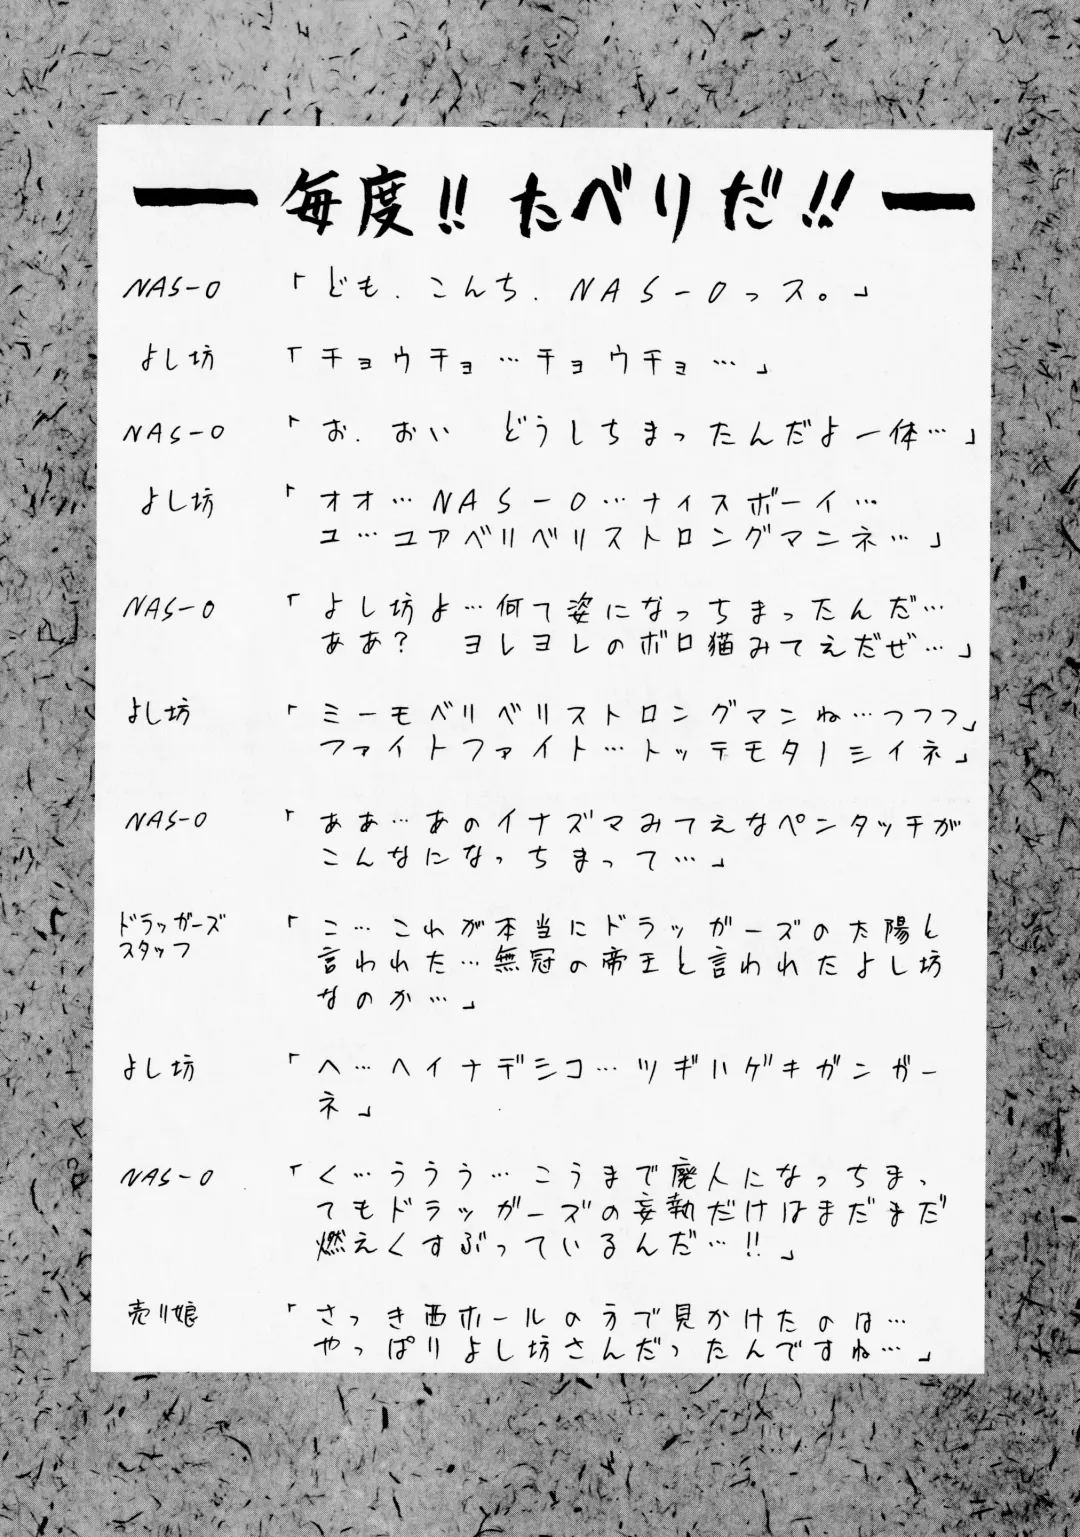 毎度!! たべりだ!!
NAS-O 「ども、こんち、NAS-Oっス。」
よし坊 「チョウチョ…チョウチョ…」
NAS-O 「お、おい どうしちまったんだよ一体…」
よし坊 「オオ…NAS-O…ナイスボーイ…
ユ…ユアベリベリストロングマンネ…」
NAS-O 「よし坊よ…何て姿になっちまったんだ…
ああ? ヨレヨレのボロ猫みてえだぜ…」
よし坊 「ミーモベリベリストロングマンね…つつつ」
ファイトファイト…トッテモタノシイネ」
NAS-O 「ああ…あのイナズマみてえなペンタッチが
こんなになっちまって…」
ドラッガーズ 「こ…これが本当にドラッガーズの太陽と
スタッフ 言われた…無冠の帝王と言われたよし坊
なのか…」
よし坊 「ヘ…ヘイナデシコ…ツギハゲキガンガー
ネ」
NAS-O 「く…ううう…こうまで廃人になっちまっ
てもドラッガーズの妄執だけはまだまだ
燃えくすぶっているんだ…!!」
売り娘 「さっき西ホールの方で見かけたのは…
やっぱりよし坊さんだったんですね…」